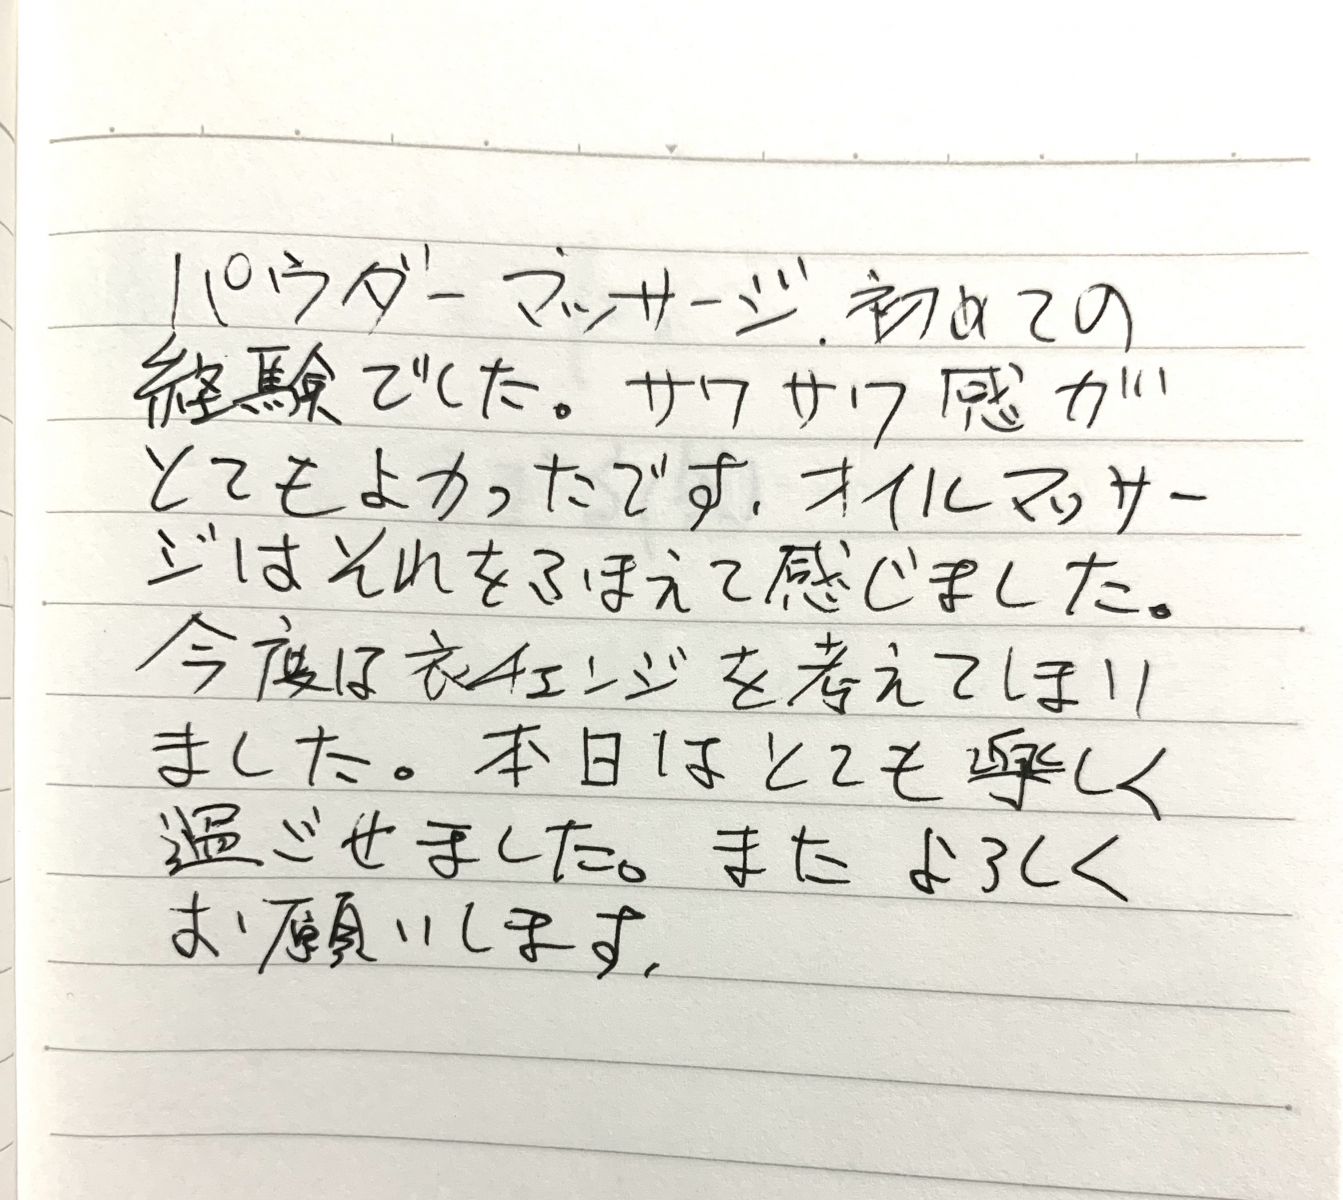 パウダーマッサージ.初めての
経験でした。サワサワ感が
とてもよかったです.オイルマッサー
ジはそれをふまえて感じました。
今度は衣チェンジを考えてしまい
ました。本日はとても楽しく
過ごせました。またよろしく
お願いします.